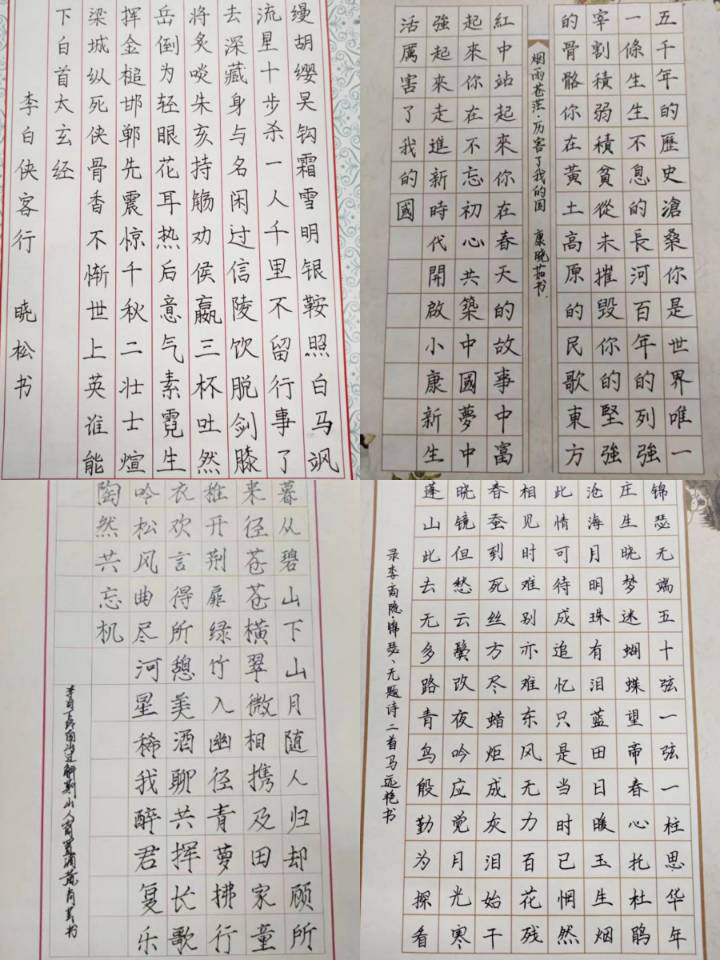 缦胡缨吴钩霜雪明银鞍照白马飒
流星十步杀一人千里不留行事了
去深藏身与名闲过信陵饮脱剑膝
将炙啖朱亥持觞劝侯嬴三杯吐然
岳倒为轻眼花耳热后意气素霓生
挥金槌邯郸先震惊千秋二壮士煊
梁城纵死侠骨香不惭世上英谁能
下白首太玄经
李白侠客行 晓松书
五千年的歷史滄桑你是世界唯一
一條生生不息的長河百年的列強
宰割積弱積貧從未摧毀你的堅強
的骨骼你在黃土高原的民歌東方
烟雨苍茫·历害了我的国 康晓茹书
紅中站起來你在春天的故事中富
起來你在不忘初心共築中國夢中
強起來走進新時代開啟小康新生
活厲害了我的國
暮从碧山下山月随人归却顾所
来径苍苍横翠微相携及田家童
稚开荆扉绿竹入幽径青萝拂行
衣欢言得所憩美酒聊共挥长歌
吟松风曲尽河星稀我醉君复乐
陶然共忘机
李白下终南山过斛斯山人宿置酒
锦瑟无端五十弦一弦一柱思华年
庄生晓梦迷蝴蝶望帝春心托杜鹃
沧海月明珠有泪蓝田日暖玉生烟
此情可待成追忆只是当时已惘然
相见时难别亦难东风无力百花残
春蚕到死丝方尽蜡炬成灰泪始干
晓镜但愁云鬓改夜吟应觉月光寒
蓬山此去无多路青鸟殷勤为探看
录李商隐·锦瑟、无题诗二首马远艳书